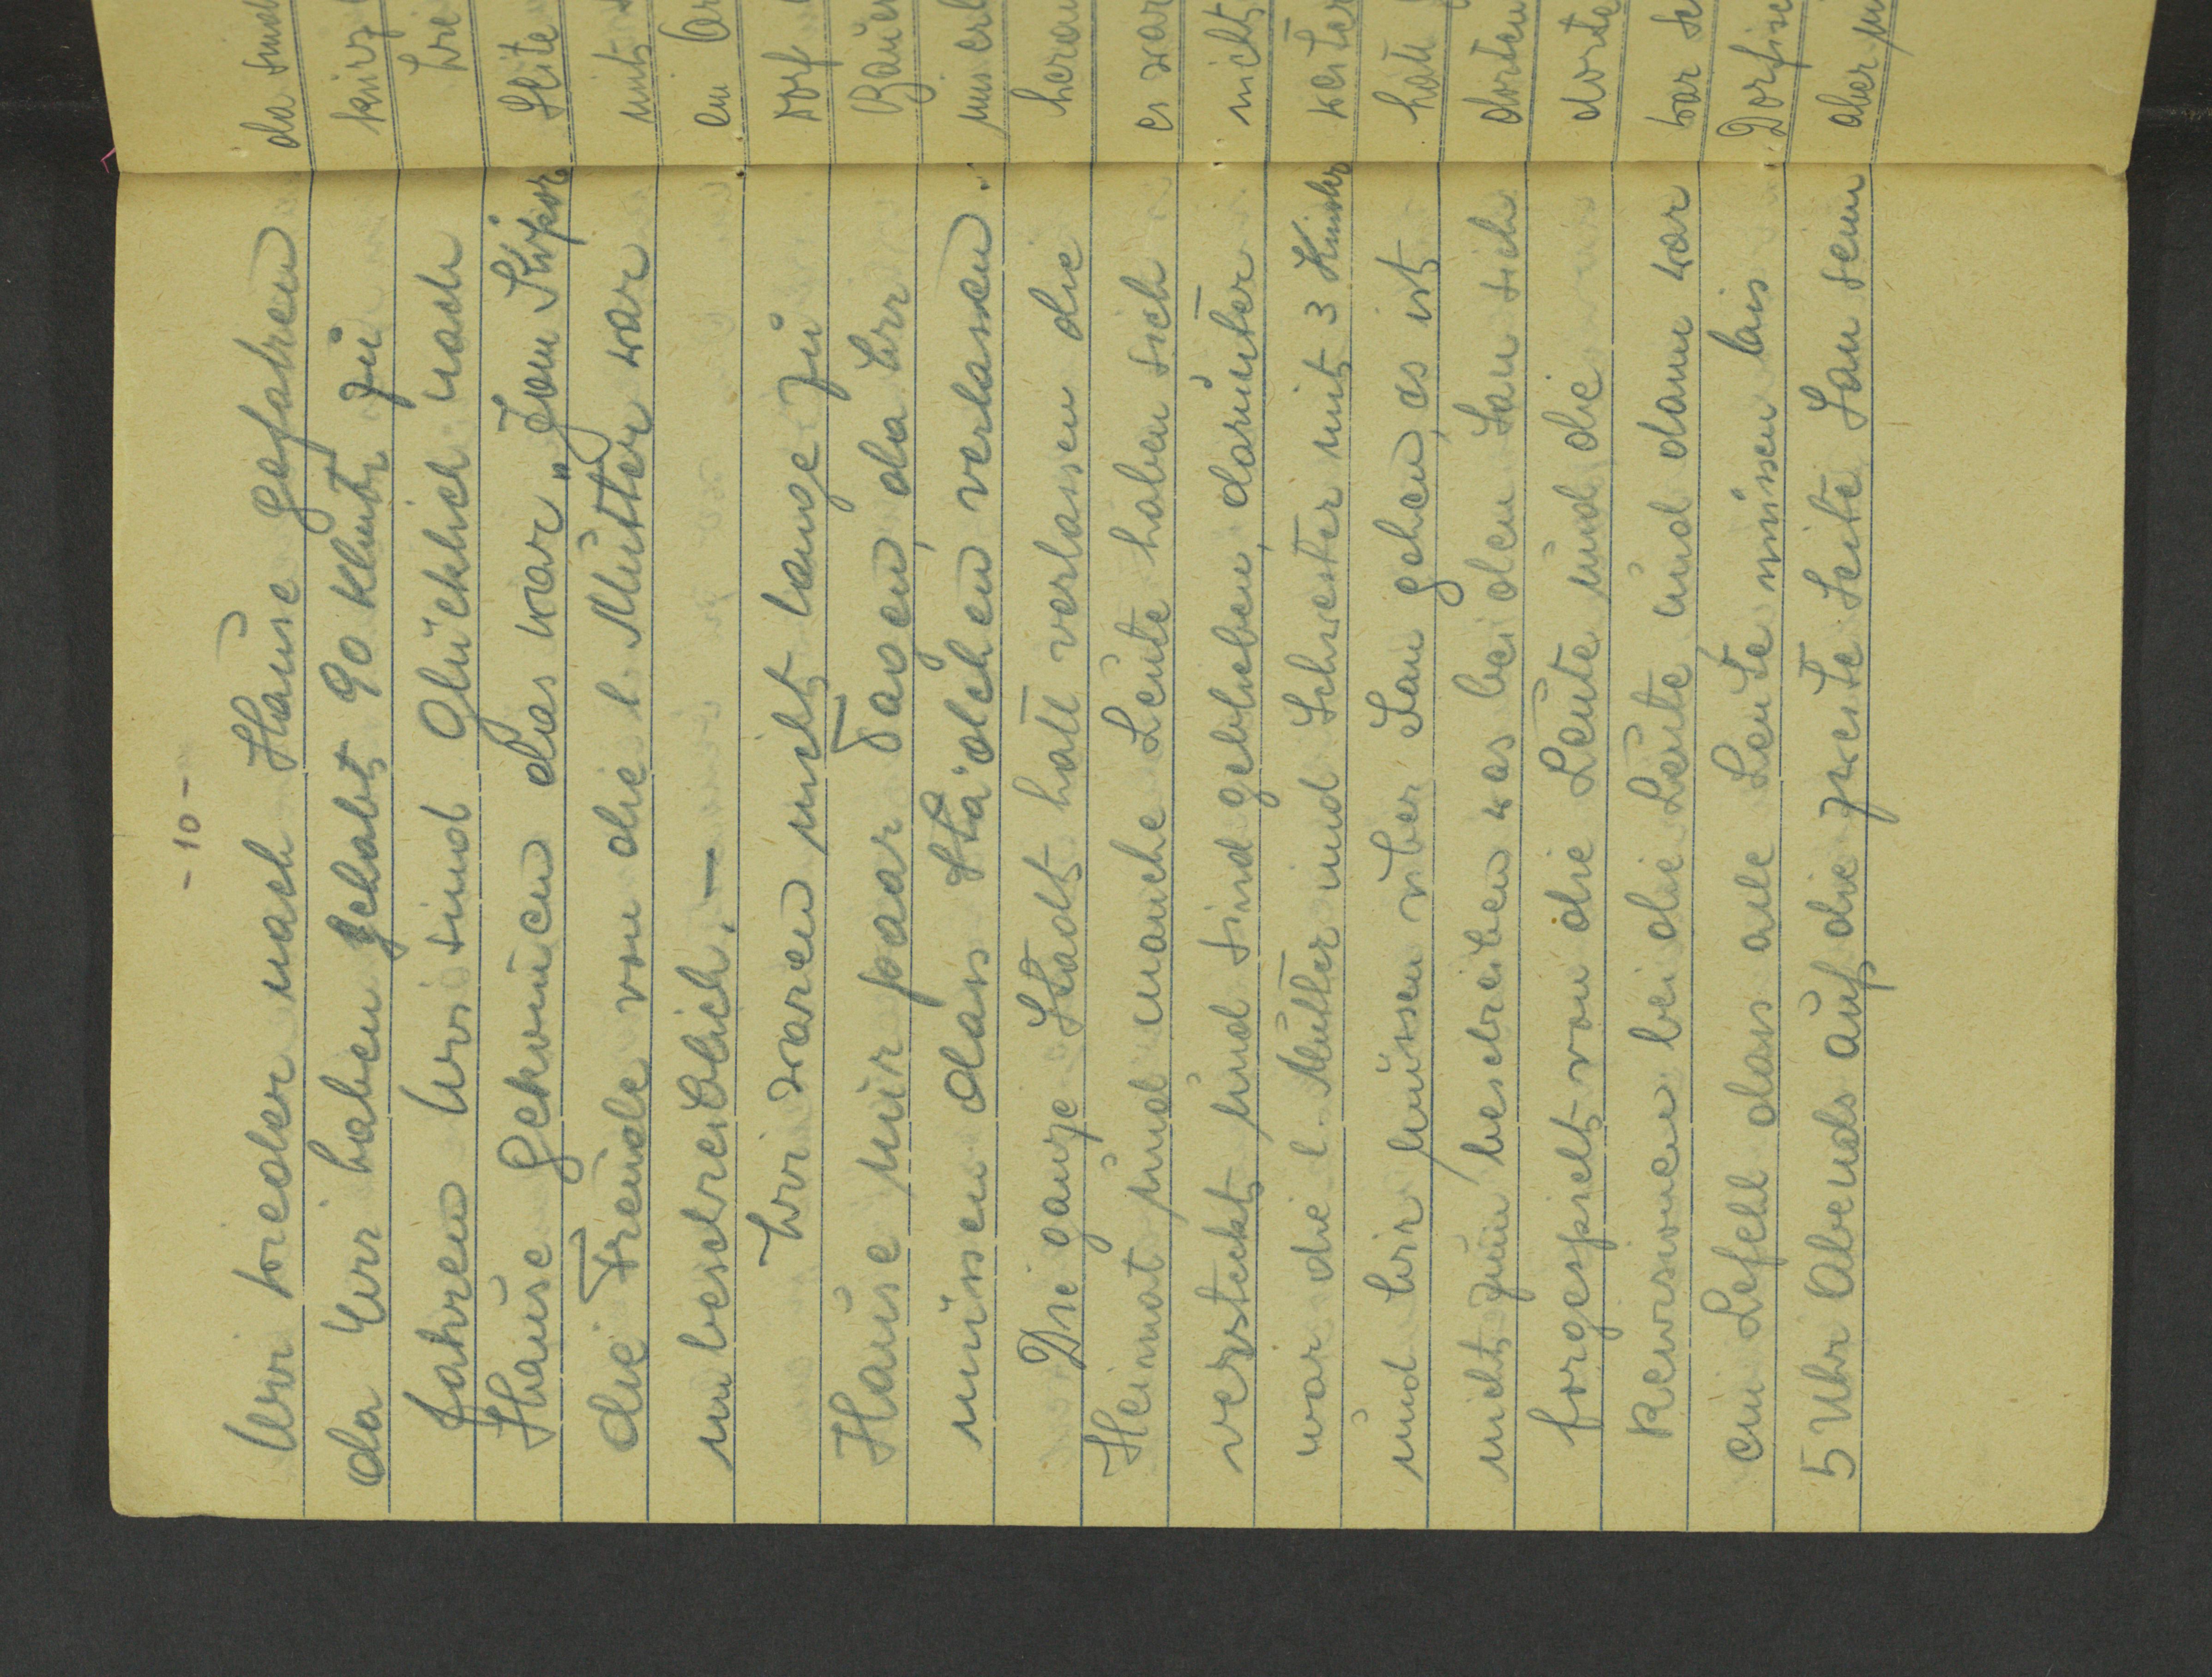 - 10 -
Wir wieder nach Hause gefahren
da Wir haben gehabt 90 klmtr zu
fahren Wir sind Glücklich nach
Hause Gekomen das war „Jom Kipor
die Freude von die l. Mutter war
unbeschreiblich. —
Wir waren nicht lange zu
Hause nur paar Tagen, da Wir
müssen dass Städchen verlassen.
Die ganze Stadt hatt verlassen die
Heimat und manche Leute haben sich
versteckt und sind geblieben, darunter
war die l. Mutter und Schwester mit 3 Kinder
und Wir müssen über San gehen, es ist
nicht zum beschreiben was bei den San sich
forgespielt von die Leute und die
Rewisionen bei die Leute und dann war
ein Befehl dass alle Leute müssen bis
5 Uhr Abends auf die zweite Seite San sein
da sind
kurz
Wie
Seite
mit
ein
Dorf
Bauer
heraus
es war
nicht
weiter
hatt
dorten
dorte
war
Dorf
aber